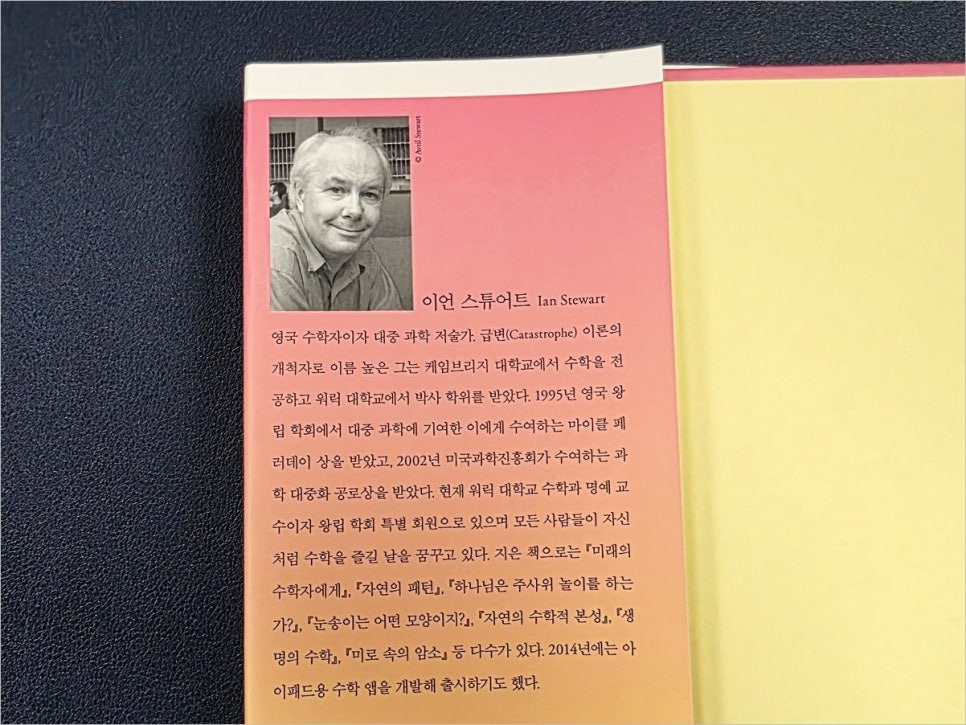 © Avril Stewart
이언 스튜어트 Ian Stewart
영국 수학자이자 대중 과학 저술가. 급변(Catastrophe) 이론의
개척자로 이름 높은 그는 케임브리지 대학교에서 수학을 전
공하고 워릭 대학교에서 박사 학위를 받았다. 1995년 영국 왕
립 학회에서 대중 과학에 기여한 이에게 수여하는 마이클 페
러데이 상을 받았고, 2002년 미국과학진흥회가 수여하는 과
학 대중화 공로상을 받았다. 현재 워릭 대학교 수학과 명예 교
수이자 왕립 학회 특별 회원으로 있으며 모든 사람들이 자신
처럼 수학을 즐길 날을 꿈꾸고 있다. 지은 책으로는 『미래의
수학자에게』, 『자연의 패턴』, 『하나님은 주사위 놀이를 하는
가?』, 『눈송이는 어떤 모양이지?』, 『자연의 수학적 본성』, 『생
명의 수학』, 『미로 속의 암소』 등 다수가 있다. 2014년에는 아
이패드용 수학 앱을 개발해 출시하기도 했다.